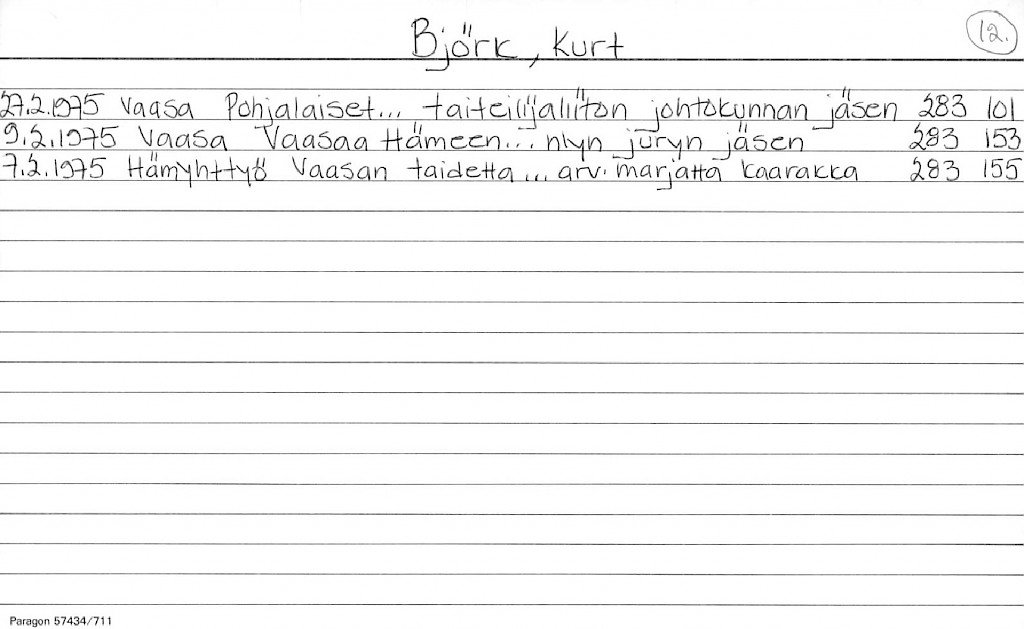 Björk, Kurt
12.
27.2.1975 Vaasa Pohjalaiset... taiteilijaliiton johtokunnan jäsen 283 101
9.2.1975 Vaasa Vaasaa Hämeen... nlyn juryn jäsen 283 153
7.2.1975 Hämyhttyö Vaasan taidetta... arv. marjatta kaarakka 283 155
Paragon 57434/711